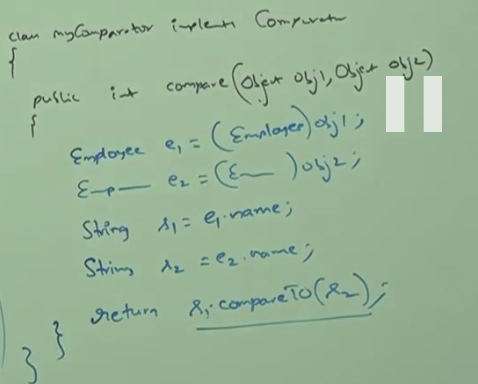 class myComparator implements Comparator
{
public int compare(Object obj1, Object obj2)
{
Employee e1 = (Employee)obj1;
E—p— e2 = (E— )obj2;
String s1 = e1.name;
String s2 = e2.name;
return s1.compareTo(s2);
}
}